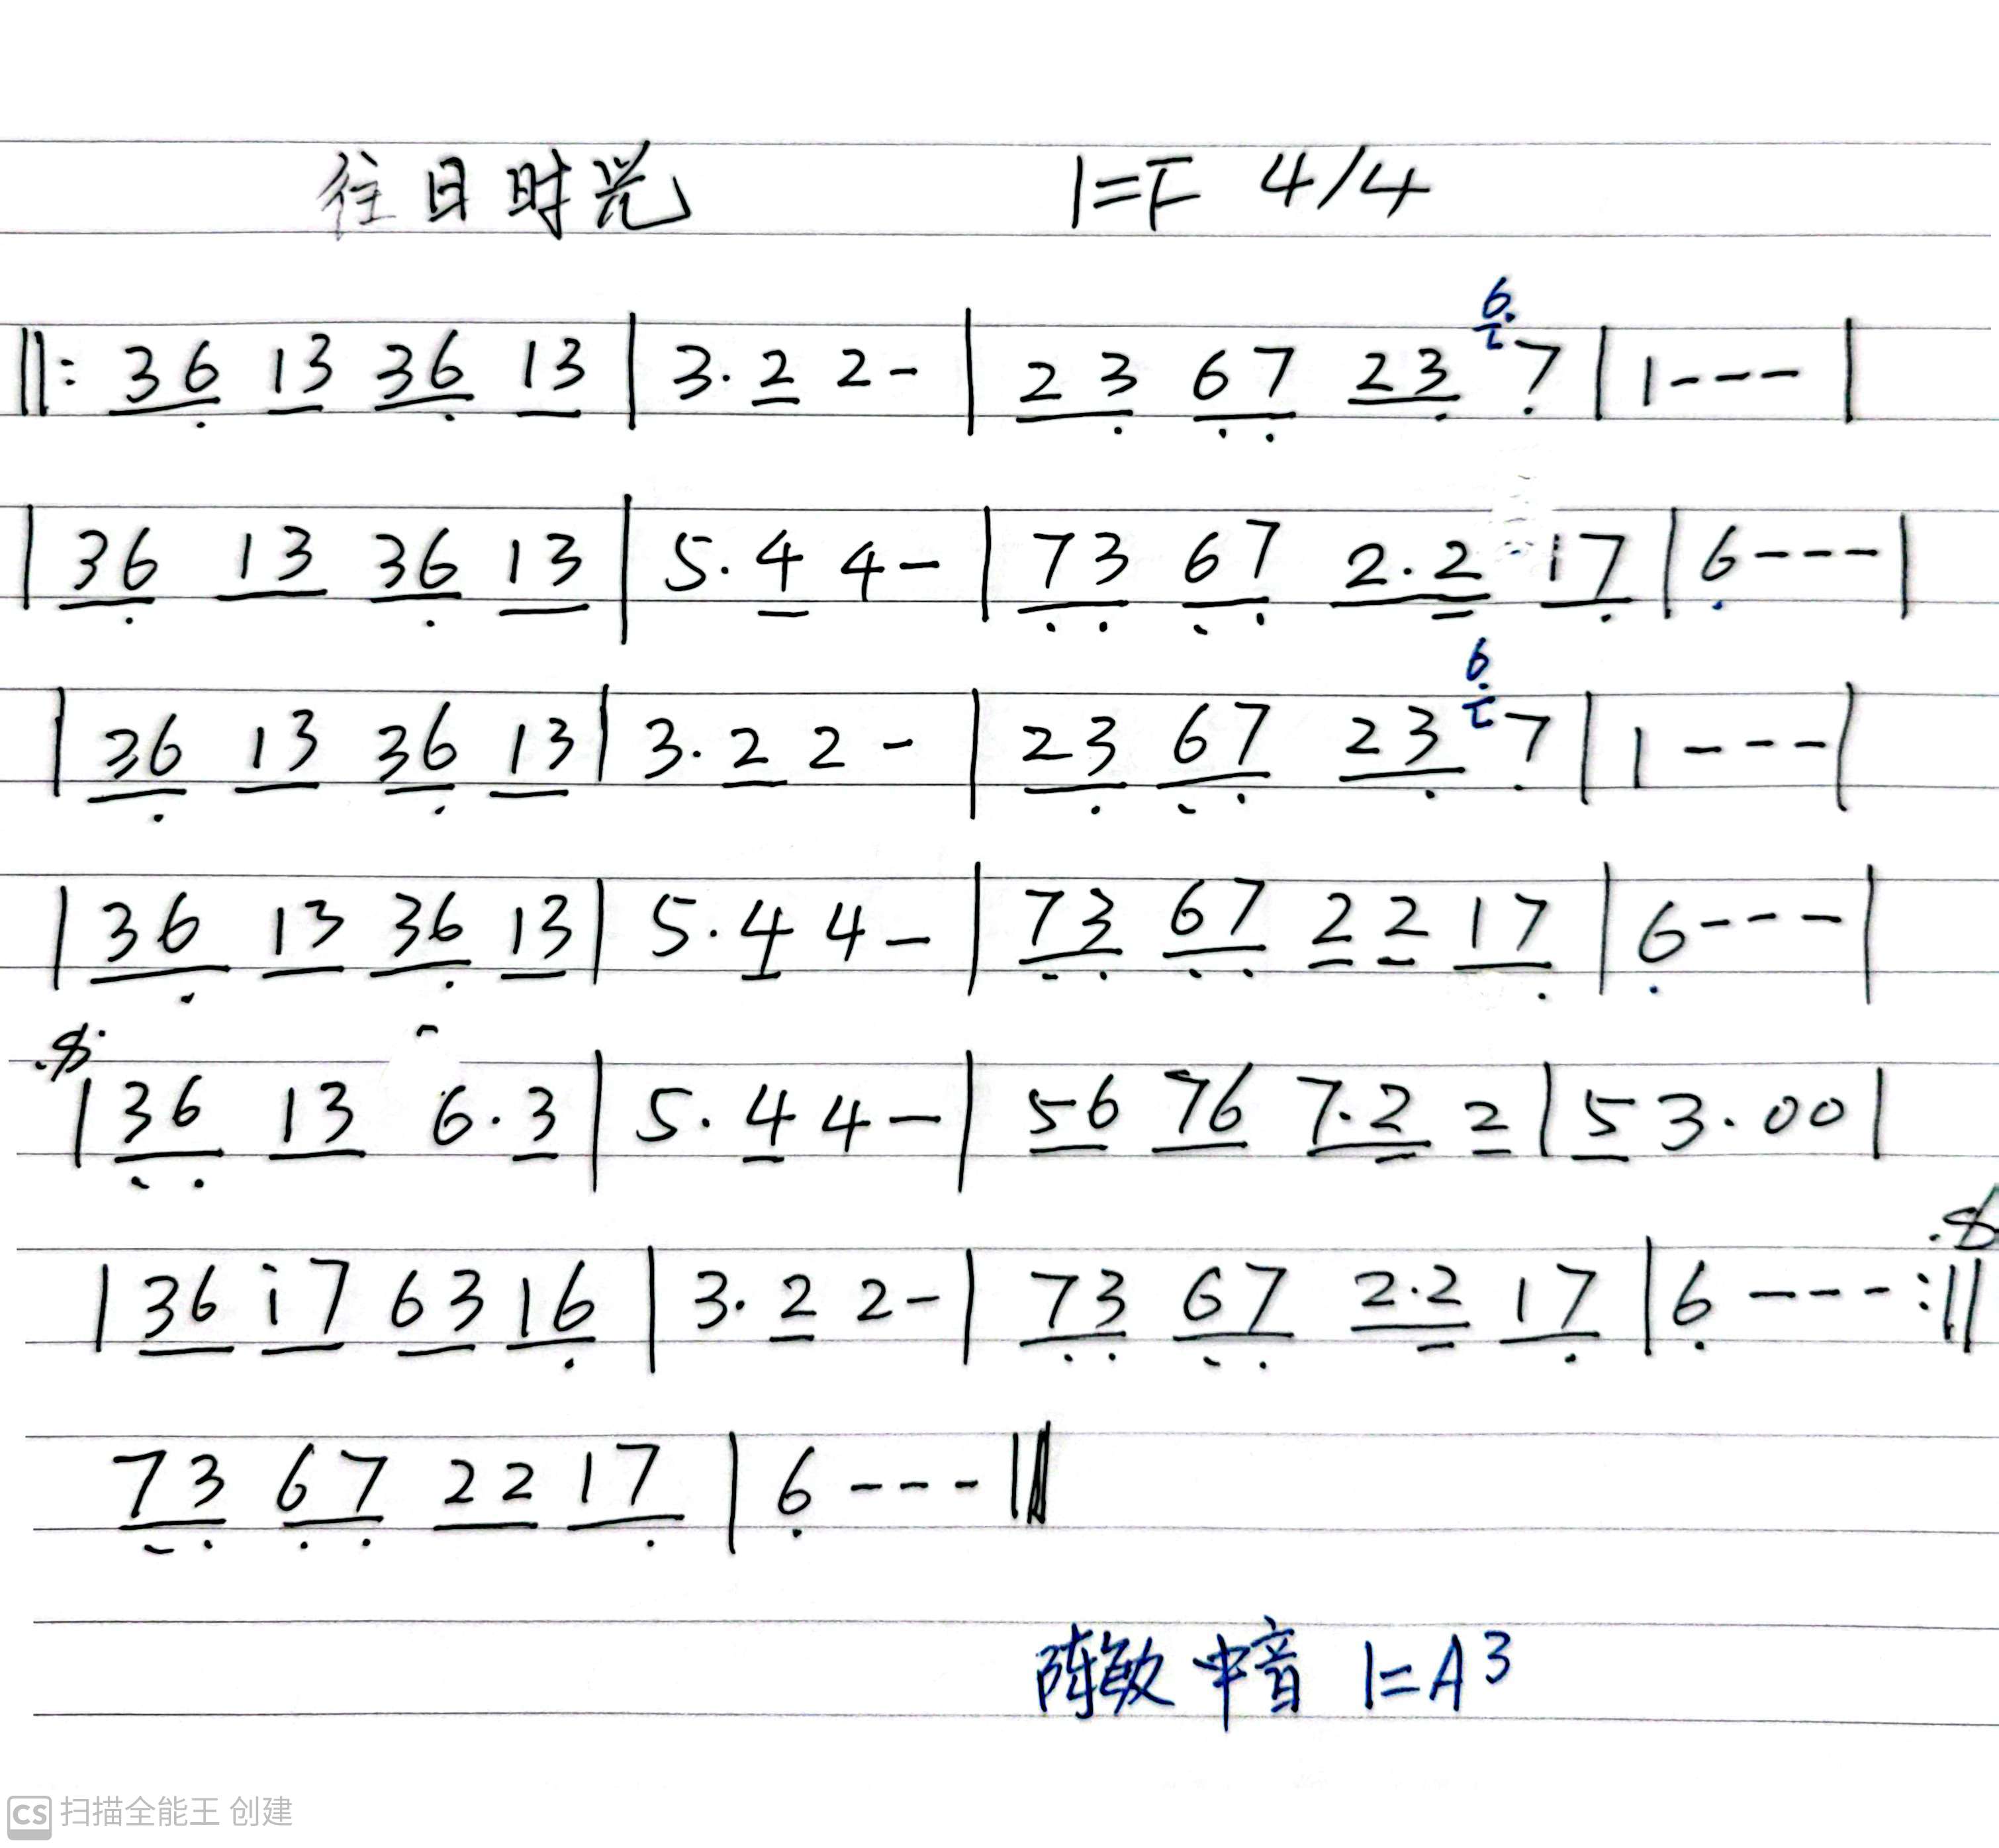 往日时光 1=F 4/4
‖: 36 13 36 13 | 3·2 2- | 23 67 23 6 7 | 1--- |
| 36 13 36 13 | 5·4 4- | 73 67 2·2 17 | 6--- |
| 36 13 36 13 | 3·2 2- | 23 67 23 6 7 | 1--- |
| 36 13 36 13 | 5·4 4- | 73 67 22 17 | 6--- |
| 36 13 6·3 | 5·4 4- | 56 76 7·2 2 | 5 3·00 |
| 36 i7 63 16 | 3·2 2- | 73 67 2·2 17 | 6---:‖
73 67 22 17 | 6---‖
陈敏 中音 1=A3
CS 扫描全能王 创建